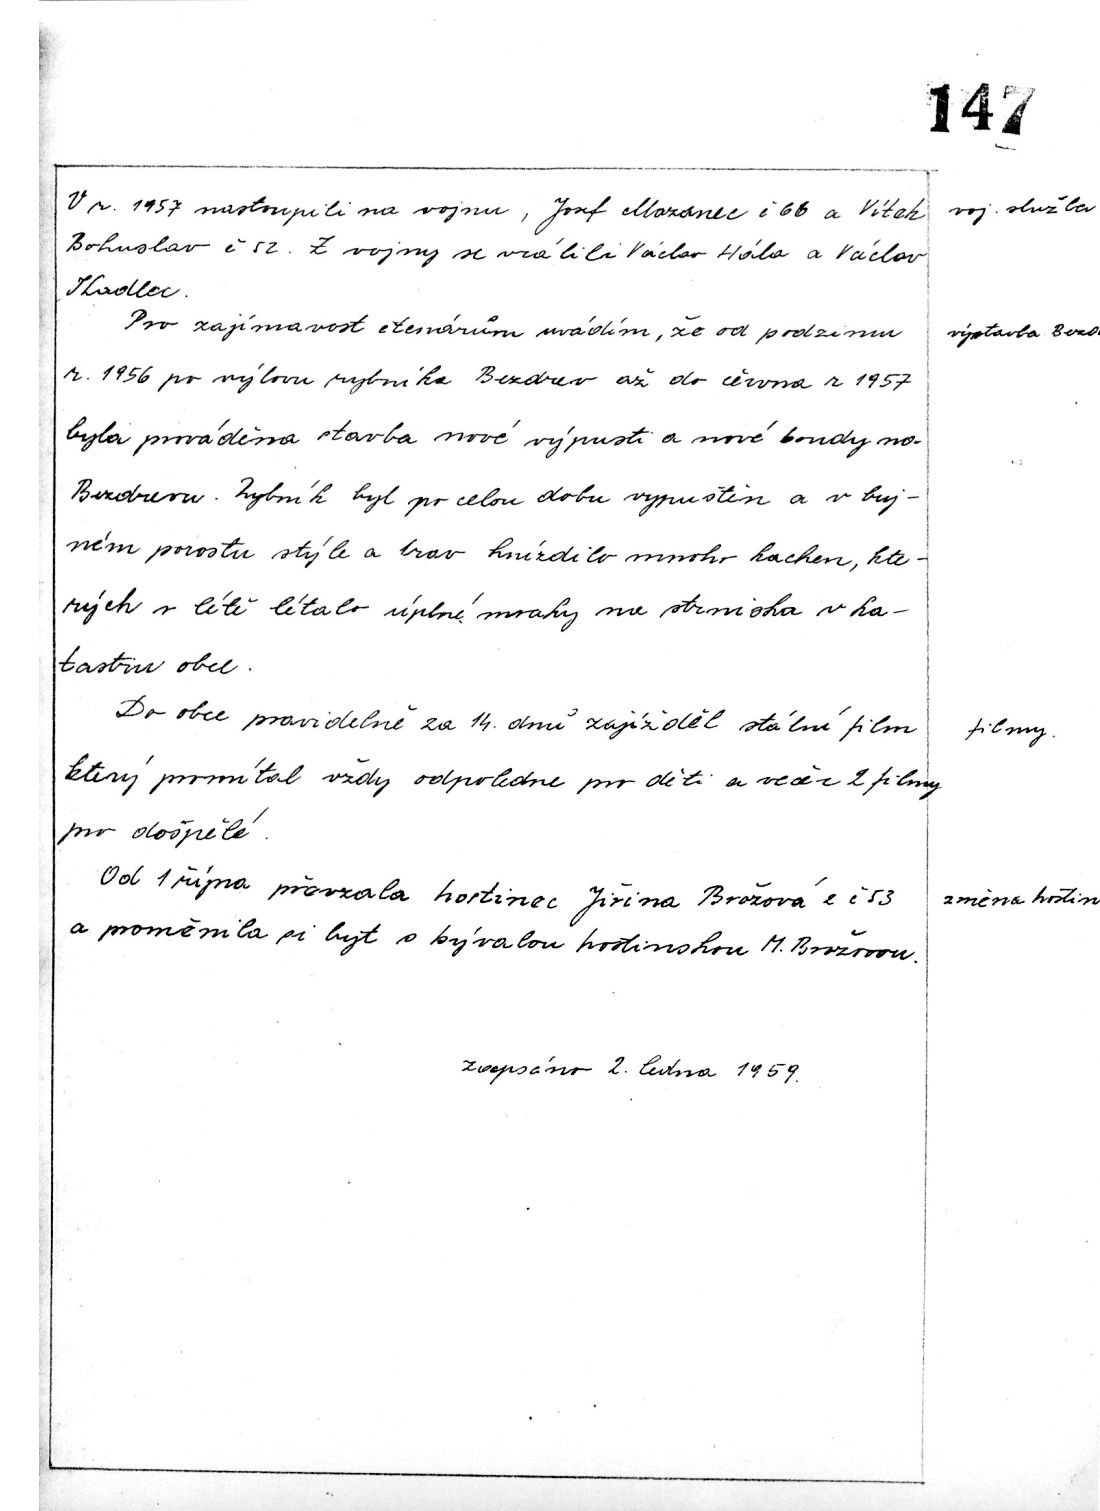 147
V r. 1957 nastoupili na vojnu, Josef Mazanec č 66 a Vítek voj. služba
Bohuslav č 52. Z vojny se vrátili Václav Hála a Václav
Kadlec.
Pro zajímavost čtenárům uvádím, že od podzimu výstavba Bezd
r. 1956 po výlovu rybníka Bezdrev až do června r 1957
byla prováděna stavba nové výpusti a nové boudy na
Bezdrevu. Rybník byl po celou dobu vypuštěn a v buj-
ném porostu a trav hnízdilo mnoho kachen, kte-
rých v létě létalo úplné mraky na strniska v ka-
tastru obce.
Do obce pravidelně za 14. dnů zajížděl stální film filmy.
který promítal vždy odpoledne pro děti a večer 2 filmy
pro dospělé.
Od 1 října převzala hostinec Jiřina Brožová z č 53 změna hostin
a proměnila si byt s bývalou hostinskou M. Brožovou.
zaepsáno 2. ledna 1959.